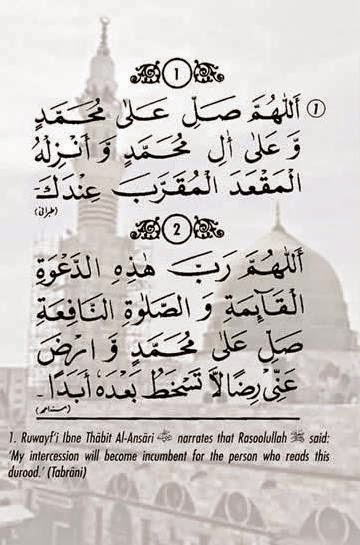 1
اَللّٰهُمَّ صَلِّ عَلٰى مُحَمَّدٍ ①
وَّ عَلٰى اٰلِ مُحَمَّدٍ وَّ اَنْزِلْهُ
الْمَقْعَدَ الْمُقَرَّبَ عِنْدَكَ
(طبرانی)
2
اَللّٰهُمَّ رَبَّ هٰذِهِ الدَّعْوَةِ
الْقَآئِمَةِ وَ الصَّلٰوةِ النَّافِعَةِ
صَلِّ عَلٰى مُحَمَّدٍ وَّ ارْضَ
عَنِّىْ رِضًا لَّا تَسْخَطُ بَعْدَهٗ اَبَدًا۔
(مسند احمد)
1. Ruwayf'i Ibne Thābit Al-Ansāri narrates that Rasoolullah ﷺ said:
'My intercession will become incumbent for the person who reads this
durood.' (Tabrāni)